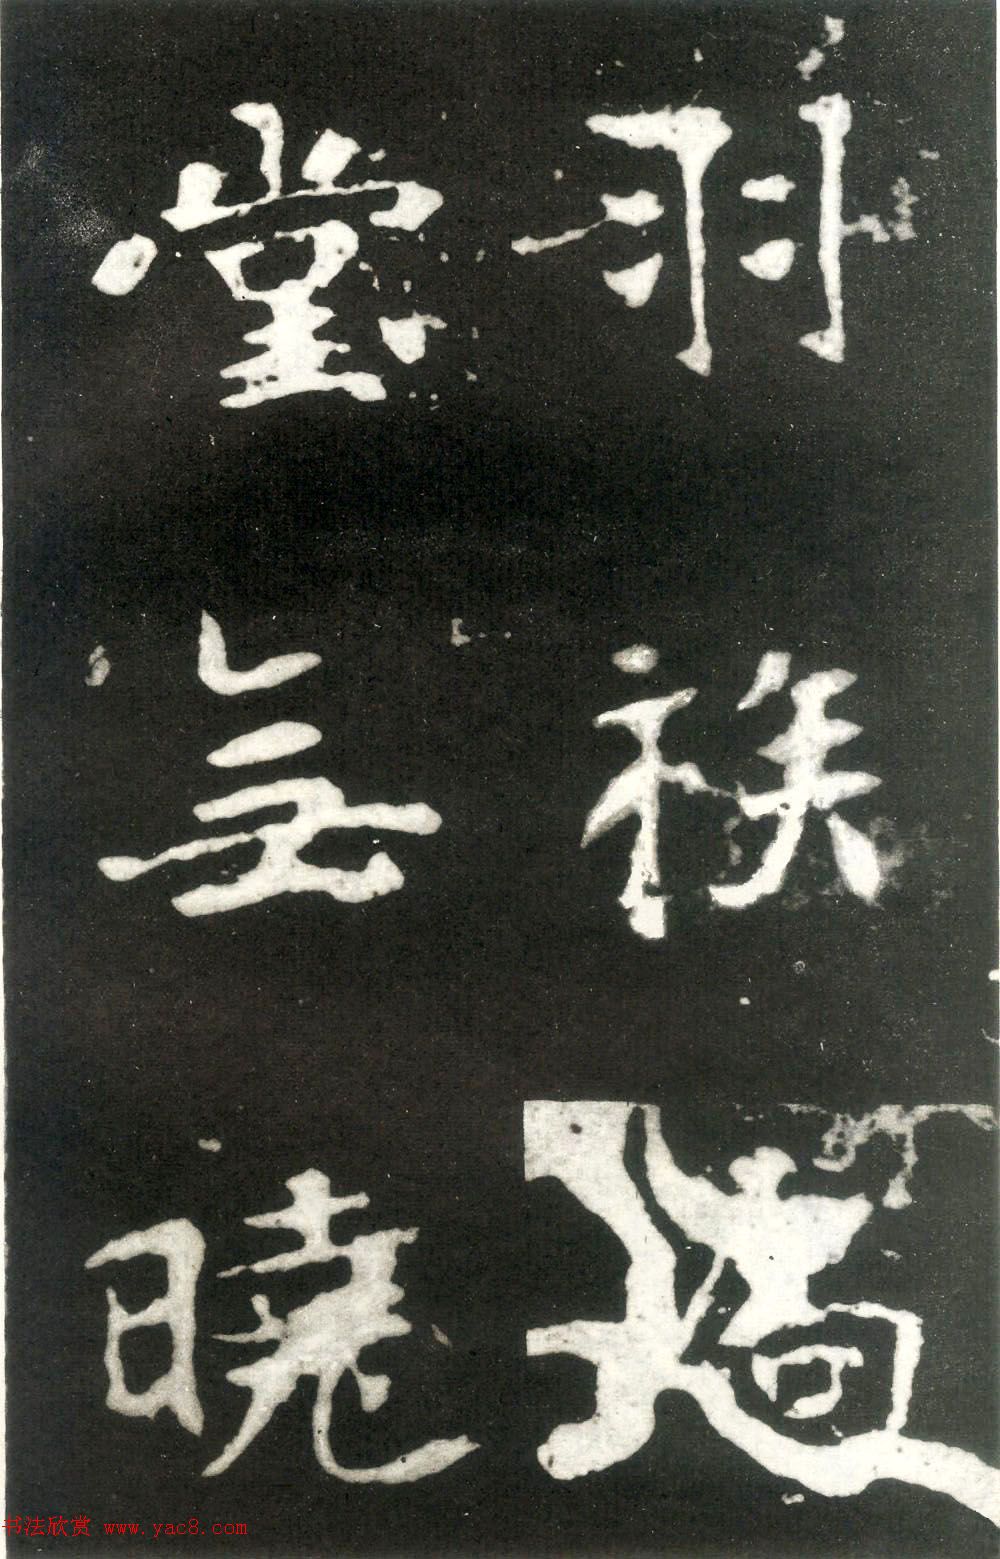 羽族
堂無曉
书法欣赏 www.yac8.com